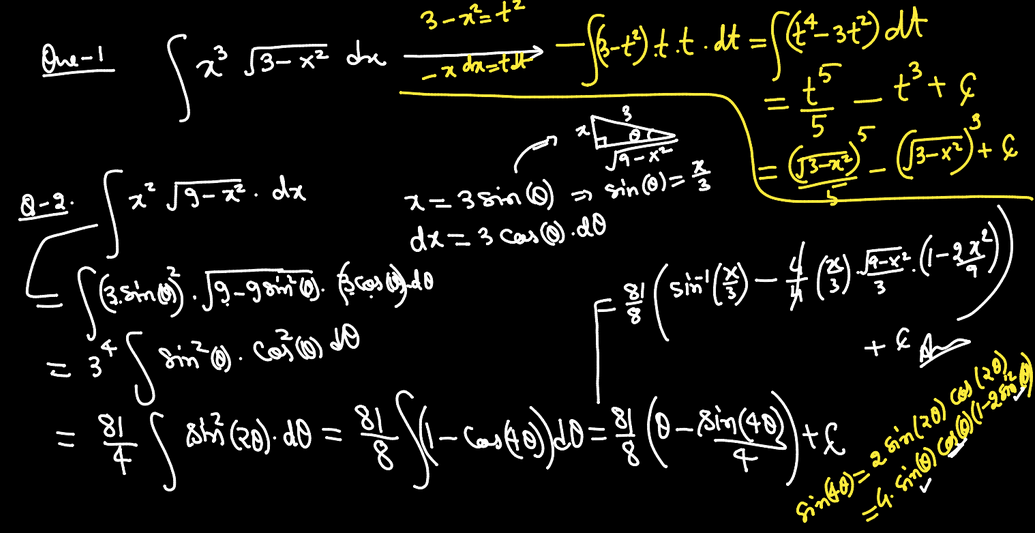 Que-1 ∫ x³ √(3-x²) dx
3-x²=t²
-x dx=t dt
-∫(3-t²).t.t.dt = ∫(t⁴-3t²) dt
= t⁵/5 - t³ + C
= (√(3-x²))⁵/5 - (√(3-x²))³ + C
Q-2. ∫ x² √(9-x²) . dx
x = 3 sin(θ) ⇒ sin(θ) = x/3
dx = 3 cos(θ).dθ
x 3 θ √(9-x²)
= ∫ (3.sin(θ))² . √(9-9sin²(θ)) . (3cos(θ)) dθ
= 3⁴ ∫ sin²(θ) . cos²(θ) dθ
= 81/4 ∫ sin²(2θ).dθ = 81/8 ∫(1-cos(4θ))dθ = 81/8 (θ - sin(4θ)/4) + C
= 81/8 (sin⁻¹(x/3) - 4/4 (x/3) . √(9-x²)/3 . (1-2x²/9))
+ C Ans
sin(4θ) = 2 sin(2θ) cos(2θ)
= 4. sin(θ) cos(θ) (1-2sin²(θ))